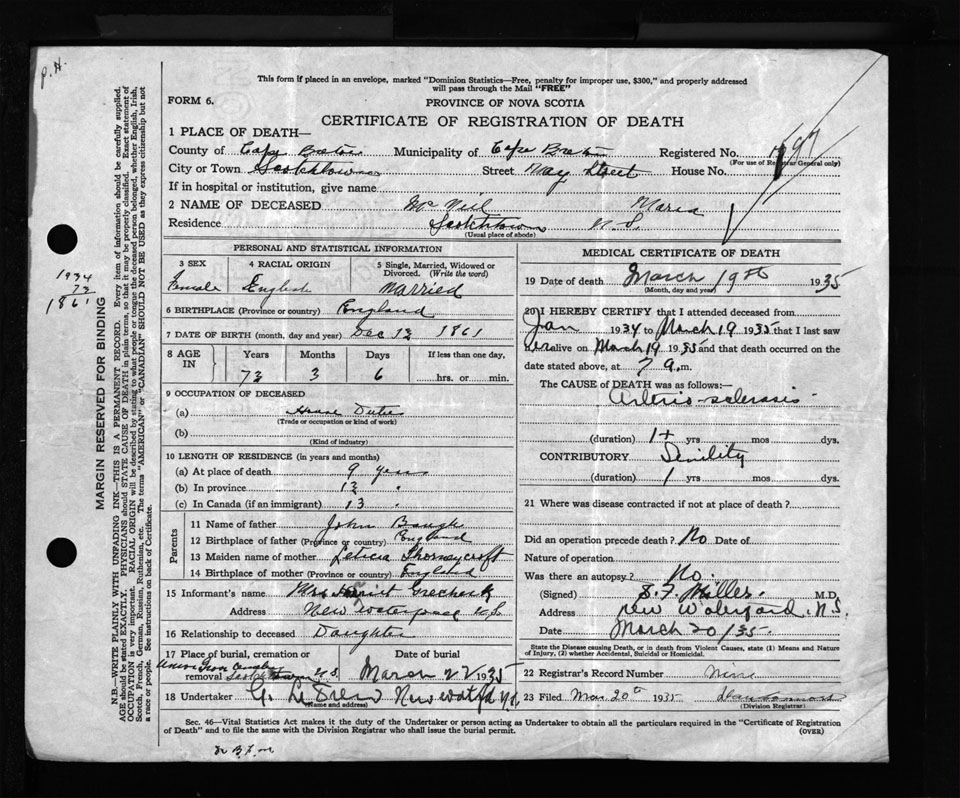 P. H.
This form if placed in an envelope, marked "Dominion Statistics—Free, penalty for improper use, $300," and properly addressed
will pass through the Mail "FREE"
FORM 6.
PROVINCE OF NOVA SCOTIA
CERTIFICATE OF REGISTRATION OF DEATH
1 PLACE OF DEATH—
County of Cape Breton Municipality of Cape Breton Registered No.
(For use of Registrar General only)
City or Town Scotchtown Street May Street House No.
If in hospital or institution, give name
2 NAME OF DECEASED McNeil Maria
Residence Scotchtown N.S.
(Usual place of abode)
PERSONAL AND STATISTICAL INFORMATION
3 SEX 4 RACIAL ORIGIN 5 Single, Married, Widowed or Divorced. (Write the word)
Female English Married
6 BIRTHPLACE (Province or country) England
7 DATE OF BIRTH (month, day and year) Dec 13 1861
8 AGE IN Years Months Days If less than one day,
73 3 6 hrs. or min.
9 OCCUPATION OF DECEASED
(a) House Duties
(Trade or occupation or kind of work)
(b)
(Kind of industry)
10 LENGTH OF RESIDENCE (in years and months)
(a) At place of death 9 years
(b) In province 13 "
(c) In Canada (if an immigrant) 13 "
Parents
11 Name of father John Baugh
12 Birthplace of father (Province or country) England
13 Maiden name of mother Leticia Thorneycroft
14 Birthplace of mother (Province or country) England
15 Informant's name Mrs
Address New Waterford N.S.
16 Relationship to deceased Daughter
17 Place of burial, cremation or removal Scotchtown N.S.
Date of burial March 22 1935
18 Undertaker New Watfd N.S.
(Name and address)
MEDICAL CERTIFICATE OF DEATH
19 Date of death March 19th 1935
(Month, day and year)
20 I HEREBY CERTIFY that I attended deceased from
Jan 1934 to March 19 1935 that I last saw
her alive on March 19 1935 and that death occurred on the
date stated above, at 7 a.m.
The CAUSE OF DEATH was as follows:—
Arterio-sclerosis
(duration) 1+ yrs mos dys.
CONTRIBUTORY Senility
(duration) 1 yrs mos dys.
21 Where was disease contracted if not at place of death?
Did an operation precede death? No Date of
Nature of operation
Was there an autopsy? No.
(Signed) S. F. Miller M.D.
Address New Waterford N.S.
Date March 20/35.
State the Disease causing Death, or in death from Violent Causes, state (1) Means and Nature of
Injury, (2) whether Accidental, Suicidal or Homicidal.
22 Registrar's Record Number Nine
23 Filed Mar. 20th 1935
(Division Registrar)
Sec. 46—Vital Statistics Act makes it the duty of the Undertaker or person acting as Undertaker to obtain all the particulars required in the "Certificate of Registration
of Death" and to file the same with the Division Registrar who shall issue the burial permit. (OVER)
1934
73
1861
MARGIN RESERVED FOR BINDING
N.B.—WRITE PLAINLY WITH UNFADING INK—THIS IS A PERMANENT RECORD. Every item of information should be carefully supplied.
AGE should be stated EXACTLY. PHYSICIANS should STATE CAUSE OF DEATH in plain terms, so that it may be properly classified. Exact statement of
OCCUPATION is very important. RACIAL ORIGIN will be described by stating to what people or tongue the deceased person belonged, whether English, Irish,
Scotch, French, German, Russian, Ruthenian, etc. The terms "AMERICAN" or "CANADIAN" SHOULD NOT BE USED as they express citizenship but not
a race or people. See instructions on back of Certificate.